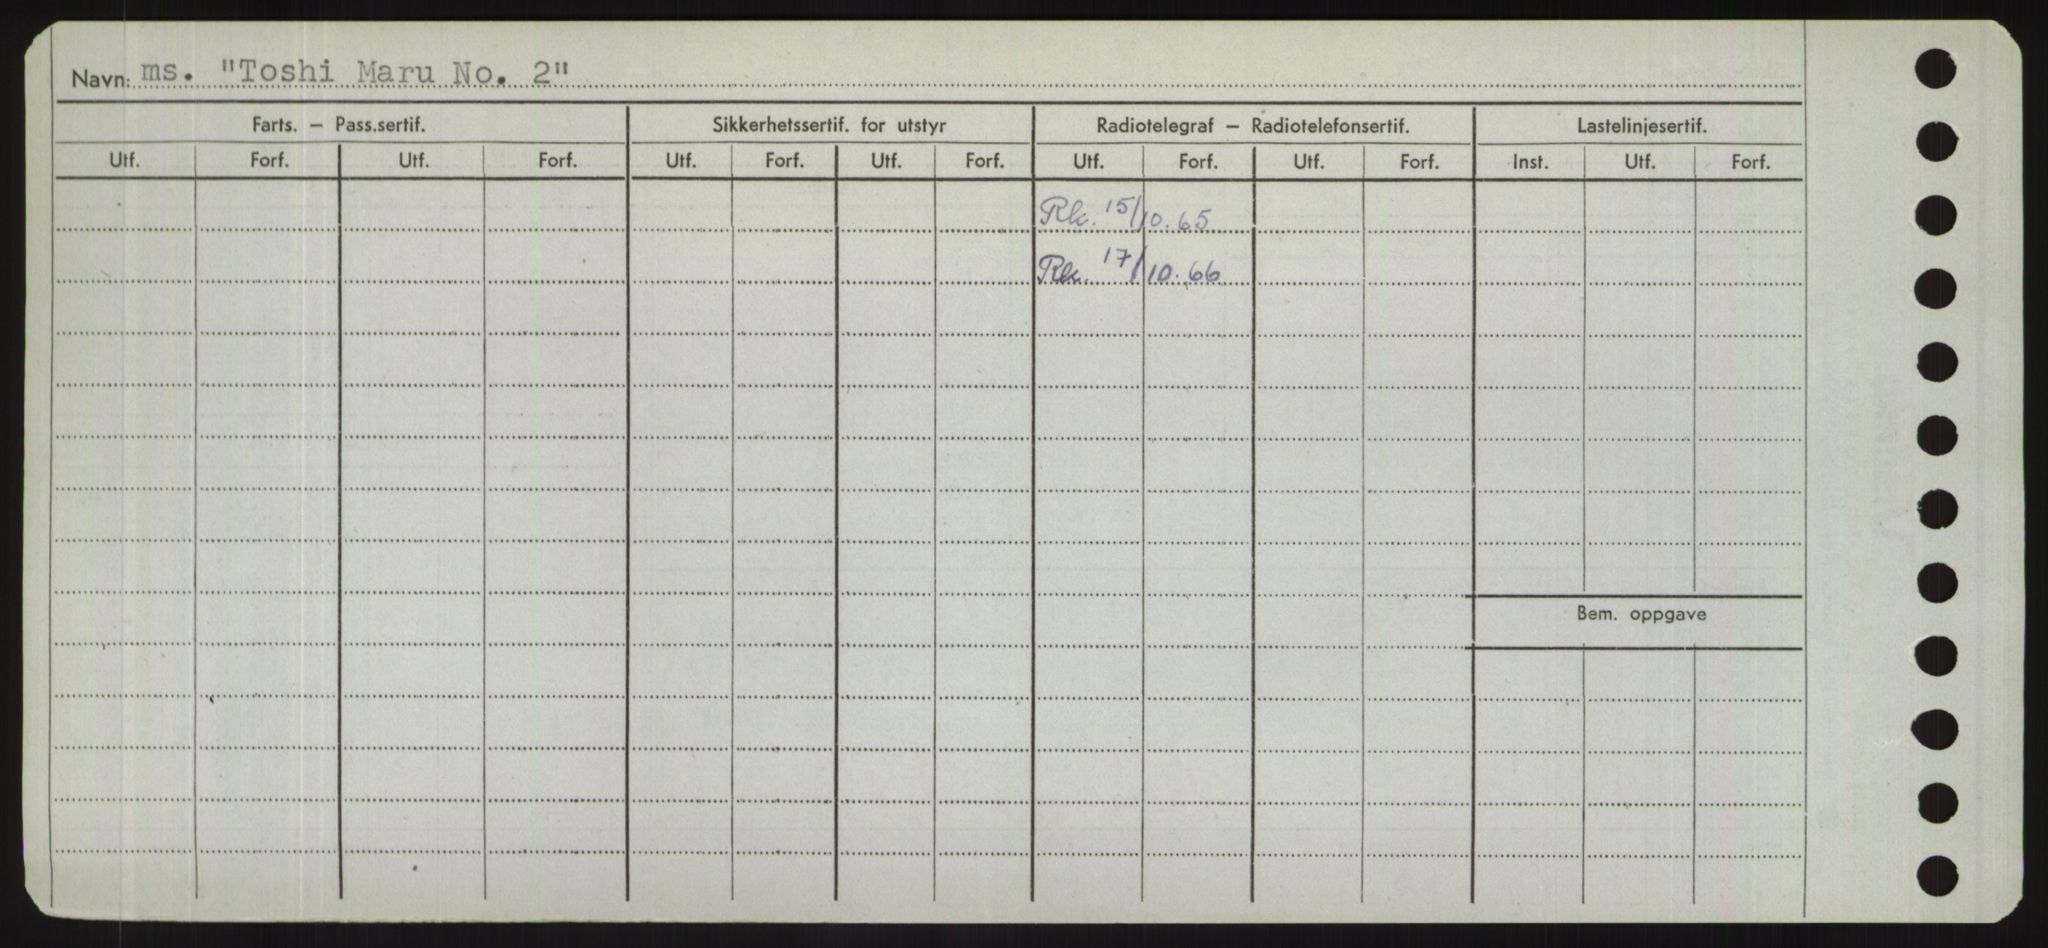 Navn: ms. "Toshi Maru No. 2"
Farts. — Pass.sertif. Sikkerhetssertif. for utstyr Radiotelegraf — Radiotelefonsertif. Lastelinjesertif.
Utf. Forf. Utf. Forf. Utf. Forf. Utf. Forf. Utf. Forf. Utf. Forf. Inst. Utf. Forf.
Rk. 15/10.65
Rk. 17/10.66
Bem. oppgave